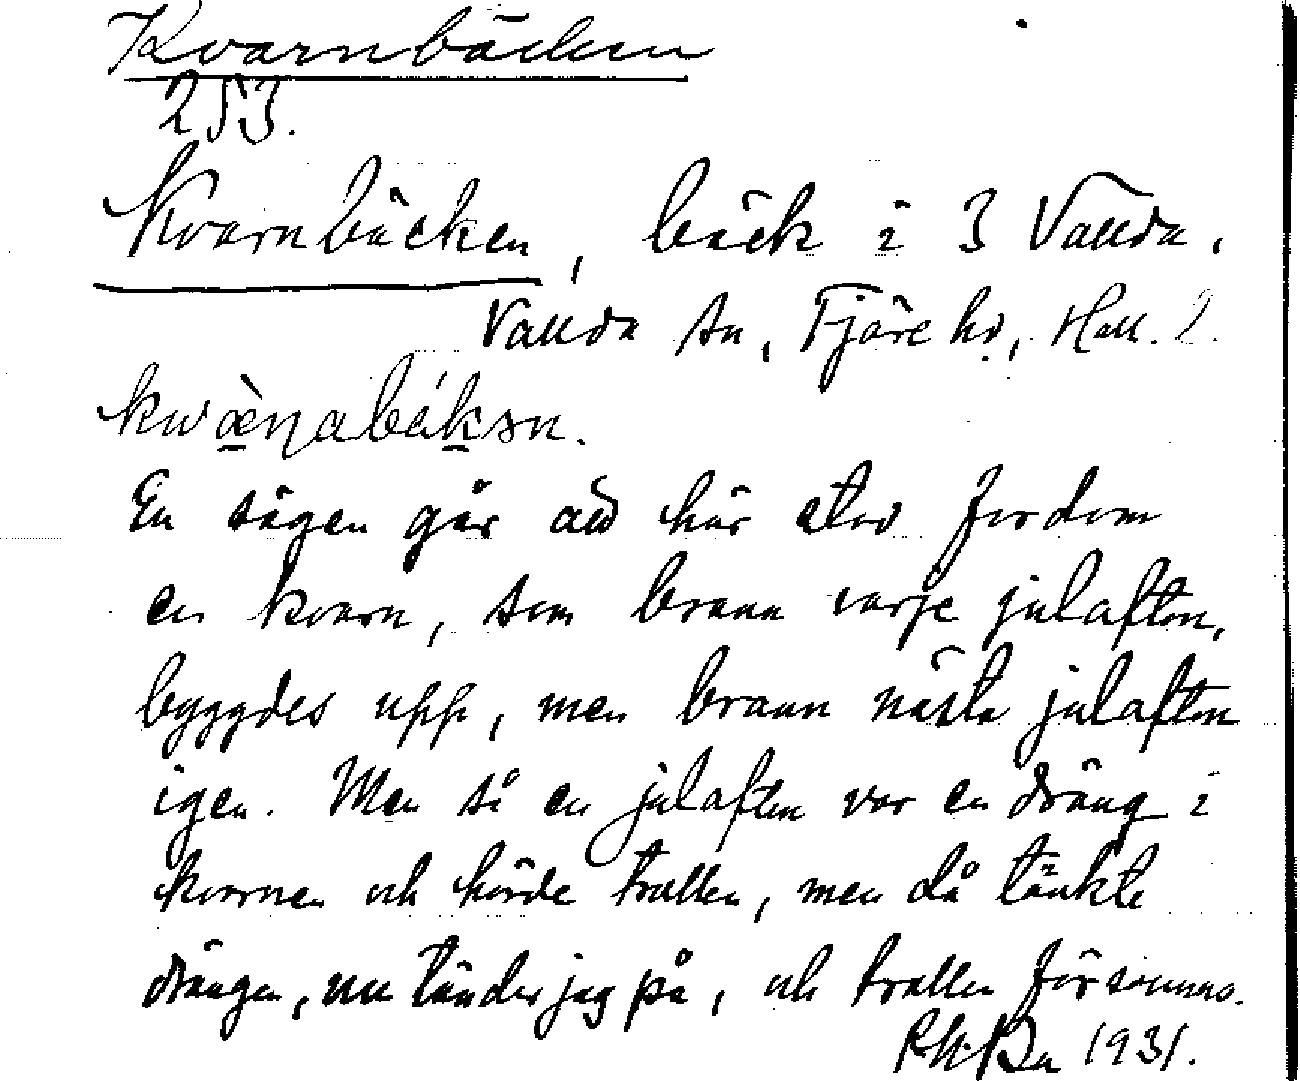 Kvarnbäcken
253.
Kvarnbäcken, bäck i 3 Vallda,
Vallda sn, Fjäre hd, Hall. l.
kwæ̀ŋabáksn.
En sägen går att här stod fordom
en kvarn, som brann varje julafton,
byggdes upp, men brann nästa julafton
igen. Men så en julafton var en dräng i
kvarnen och hörde trollen, men då tänkte
drängen, nu tänder jag på, och trollen försvunno.
1931.